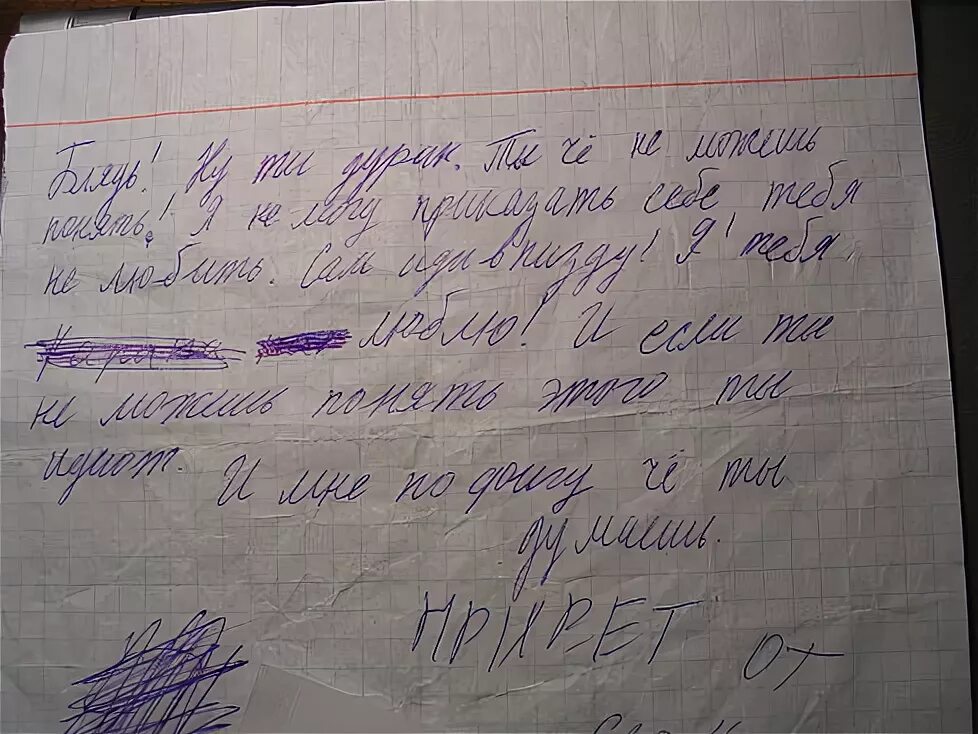 Блядь! Ну ты дурак. Ты чё не можешь
понять! Я не могу приказать себе тебя
не любить. Сам иди в пизду! Я! тебя
люблю! И если ты
не можешь понять этого ты
идиот.
И мне по фигу чё ты
думаешь.
ПРИВЕТ от